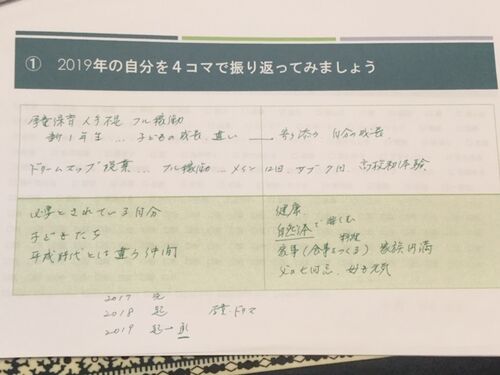 ① 2019年の自分を4コマで振り返ってみましょう
学童保育 人手不足 フル稼働
新1年生 … 子どもの成長、違い 寄り添う 自分の成長
ドリームマップ授業 … フル稼働 … メイン 回、サブ 回、高校初体験
必要とされている自分
健康
子どもたち
自然体で 楽しむ
平成時代とは違う仲間
料理
家事(食事をつくる) 家族円満
父の七回忌、
2017
2018 起 学童・ドリマ
2019 起→承